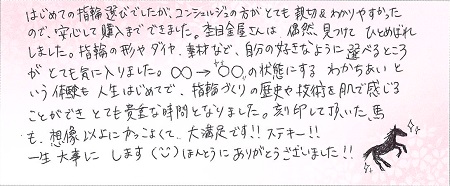 はじめての指輪選びでしたが、コンシェルジュの方がとても親切&わかりやすかった
ので、安心して購入までできました。杢目金屋さんは、偶然、見つけて ひとめぼれ
しました。指輪の形やダイヤ、素材など、自分の好きなように選べるところ
がとても気に入りました。○○→○○の状態にする わかちあい と
いう体験も 人生はじめてで、指輪づくりの歴史や技術を肌で感じる
ことができ とても貴重な時間となりました。刻印して頂いた 馬
も、想像以上にかっこよくて、大満足です!! ステキー!!
一生 大事に します(◡̈) ほんとうにありがとうございました!!